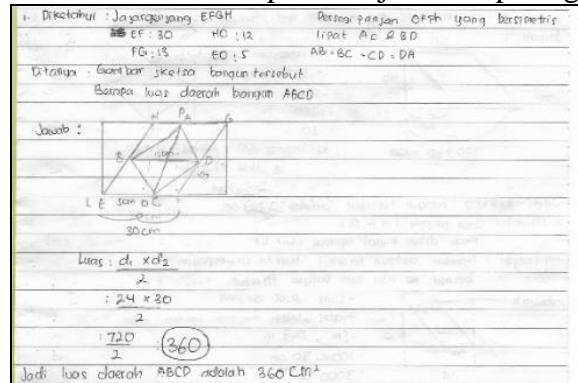 1. Diketahui : Jajargenjang EFGH
Persegi panjang OFPH yang bersimetris
EF : 30 HO : 12
lipat AC & BD
FG : 13 EO : 5
AB = BC = CD = DA
Ditanya : Gambar sketsa bangun tersebut
Berapa luas daerah bangun ABCD
Jawab :
H P A G
B D
E 5cm O C F
30 cm
Luas : d1 x d2
2
: 24 x 30
2
: 720 : 360
2
Jadi luas daerah ABCD adalah 360 Cm²